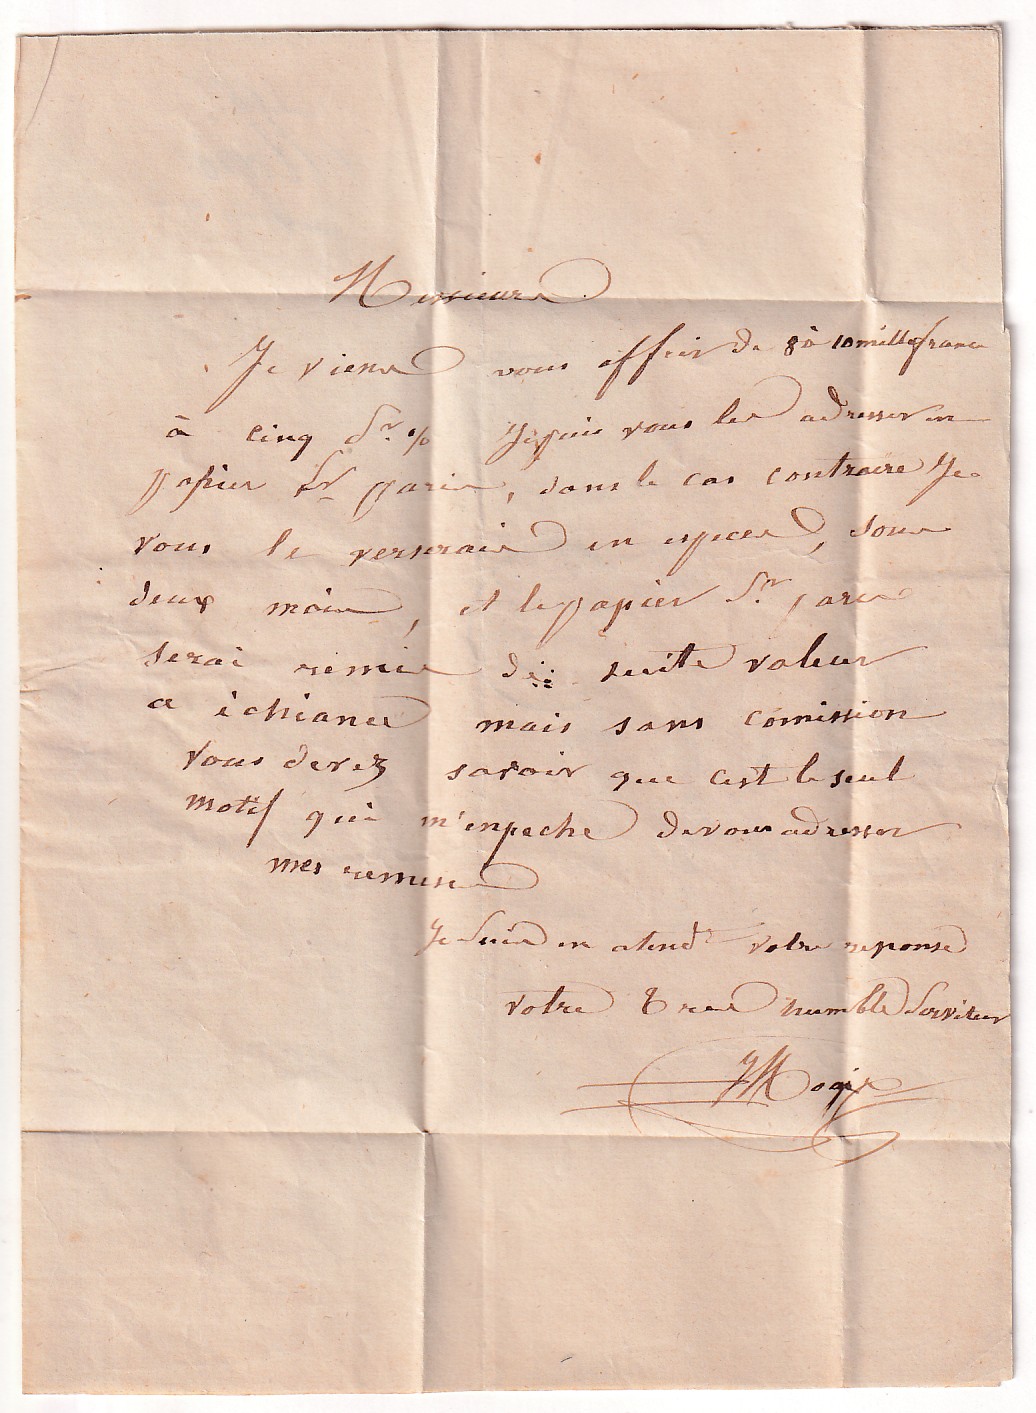 Messieurs
Je viens vous offrir de 8 à 10 mille francs
à cinq Pr % Je puis vous les adresser en
papier Sr paris, dans le cas contraire Je
vous le verserais en espices, sous
deux mois, et le papier Sr paris
serai remis de suite valeur
a ichiance mais sans comission
Vous devez savoir que cest le seul
motif qui m'enpeche de vous adresser
mes remises
Je suis en atendt votre reponse
votre tres humble Serviteur